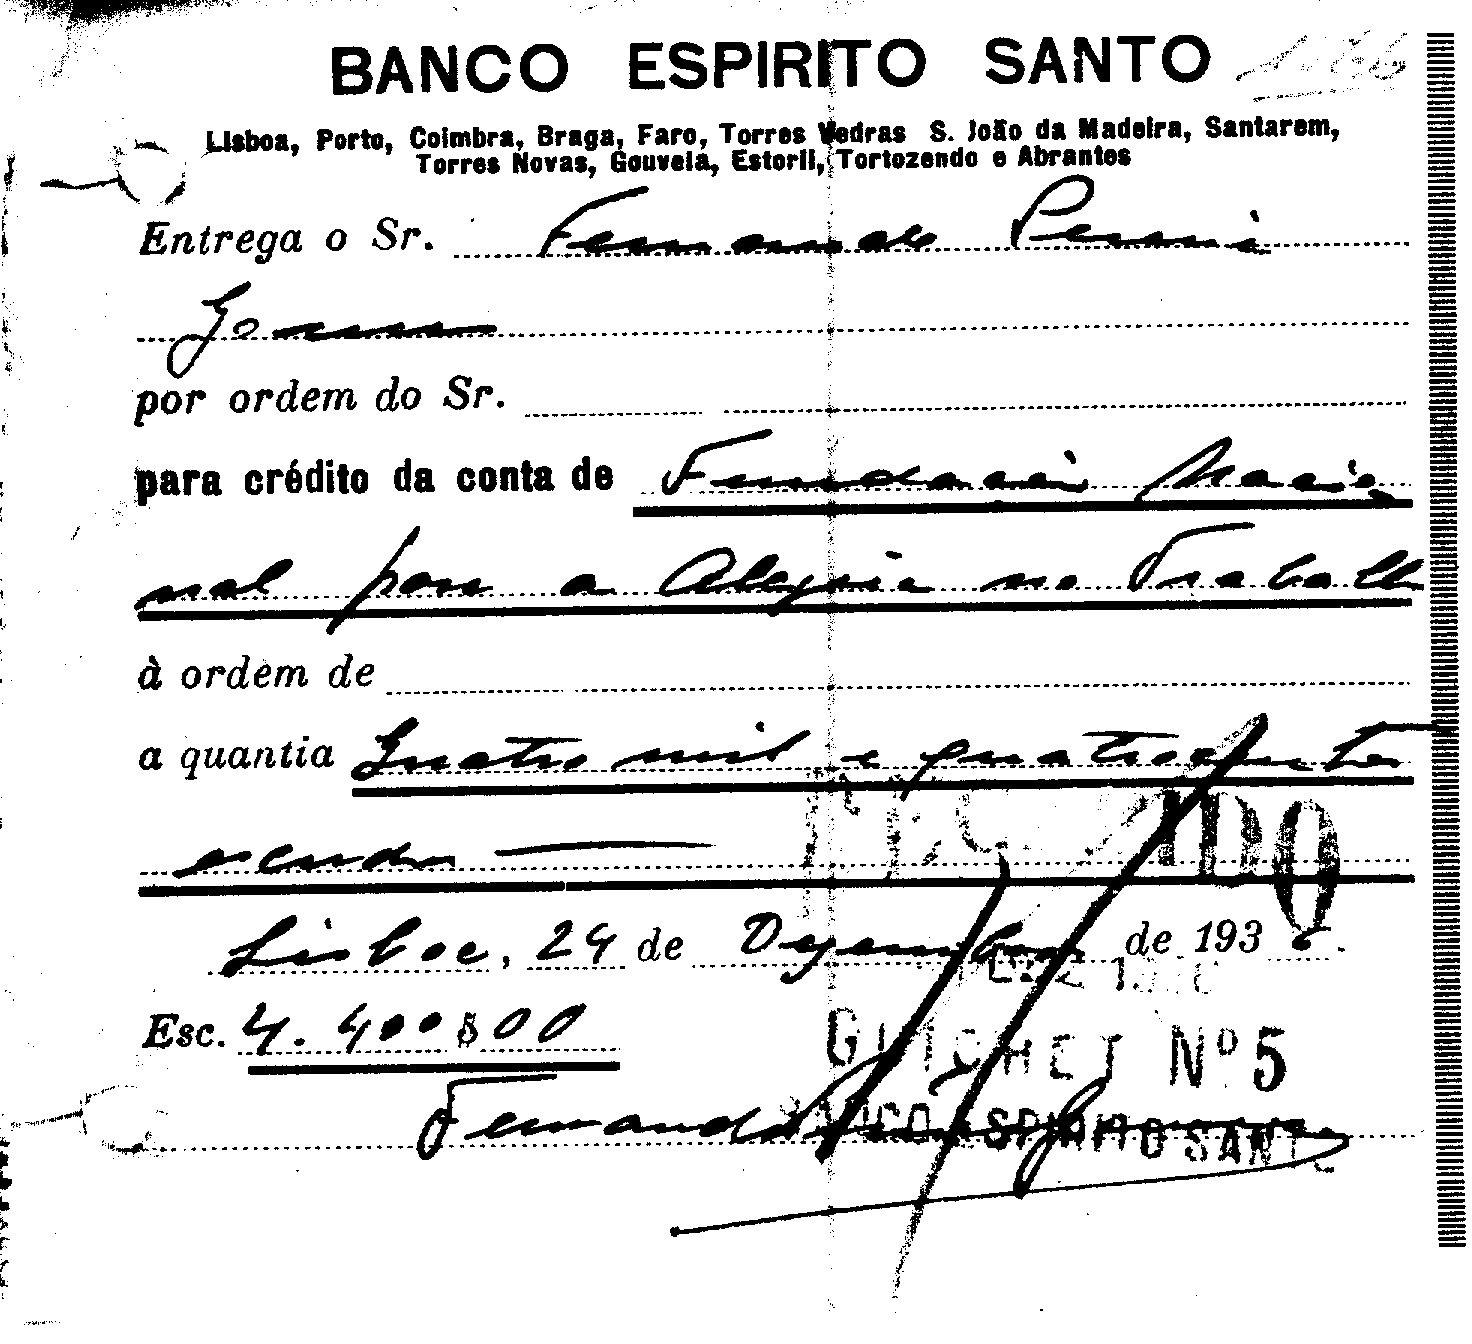 BANCO ESPIRITO SANTO
Lisboa, Porto, Coimbra, Braga, Faro, Torres Vedras S. João da Madeira, Santarem,
Torres Novas, Gouveia, Estoril, Tortozendo e Abrantes
Entrega o Sr. Fernando
por ordem do Sr.
para crédito da conta de Fundação Nacio
nal para a Alegria no Trabalh
à ordem de
a quantia Quatro mil e quatrocentos
escudos
Lisboa, 24 de Dezembro de 1936.
Esc. 4.400$00
GUICHET Nº 5
Fernando
BANCO ESPIRITO SANTO